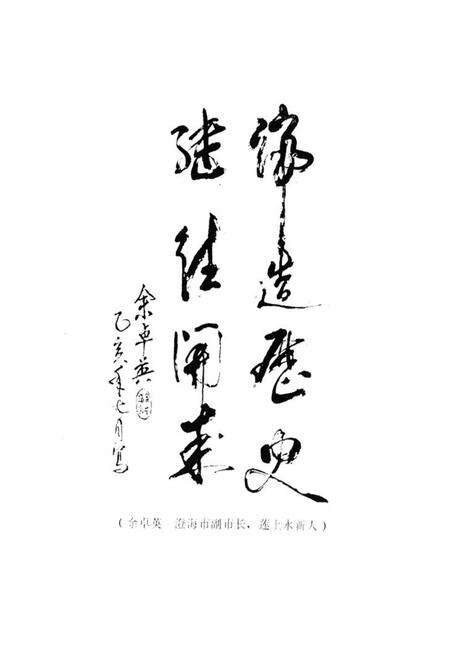 缔造历史
继往开来
余卓英
乙亥年七月写
(余卓英 澄海市副市长，莲上永新人)